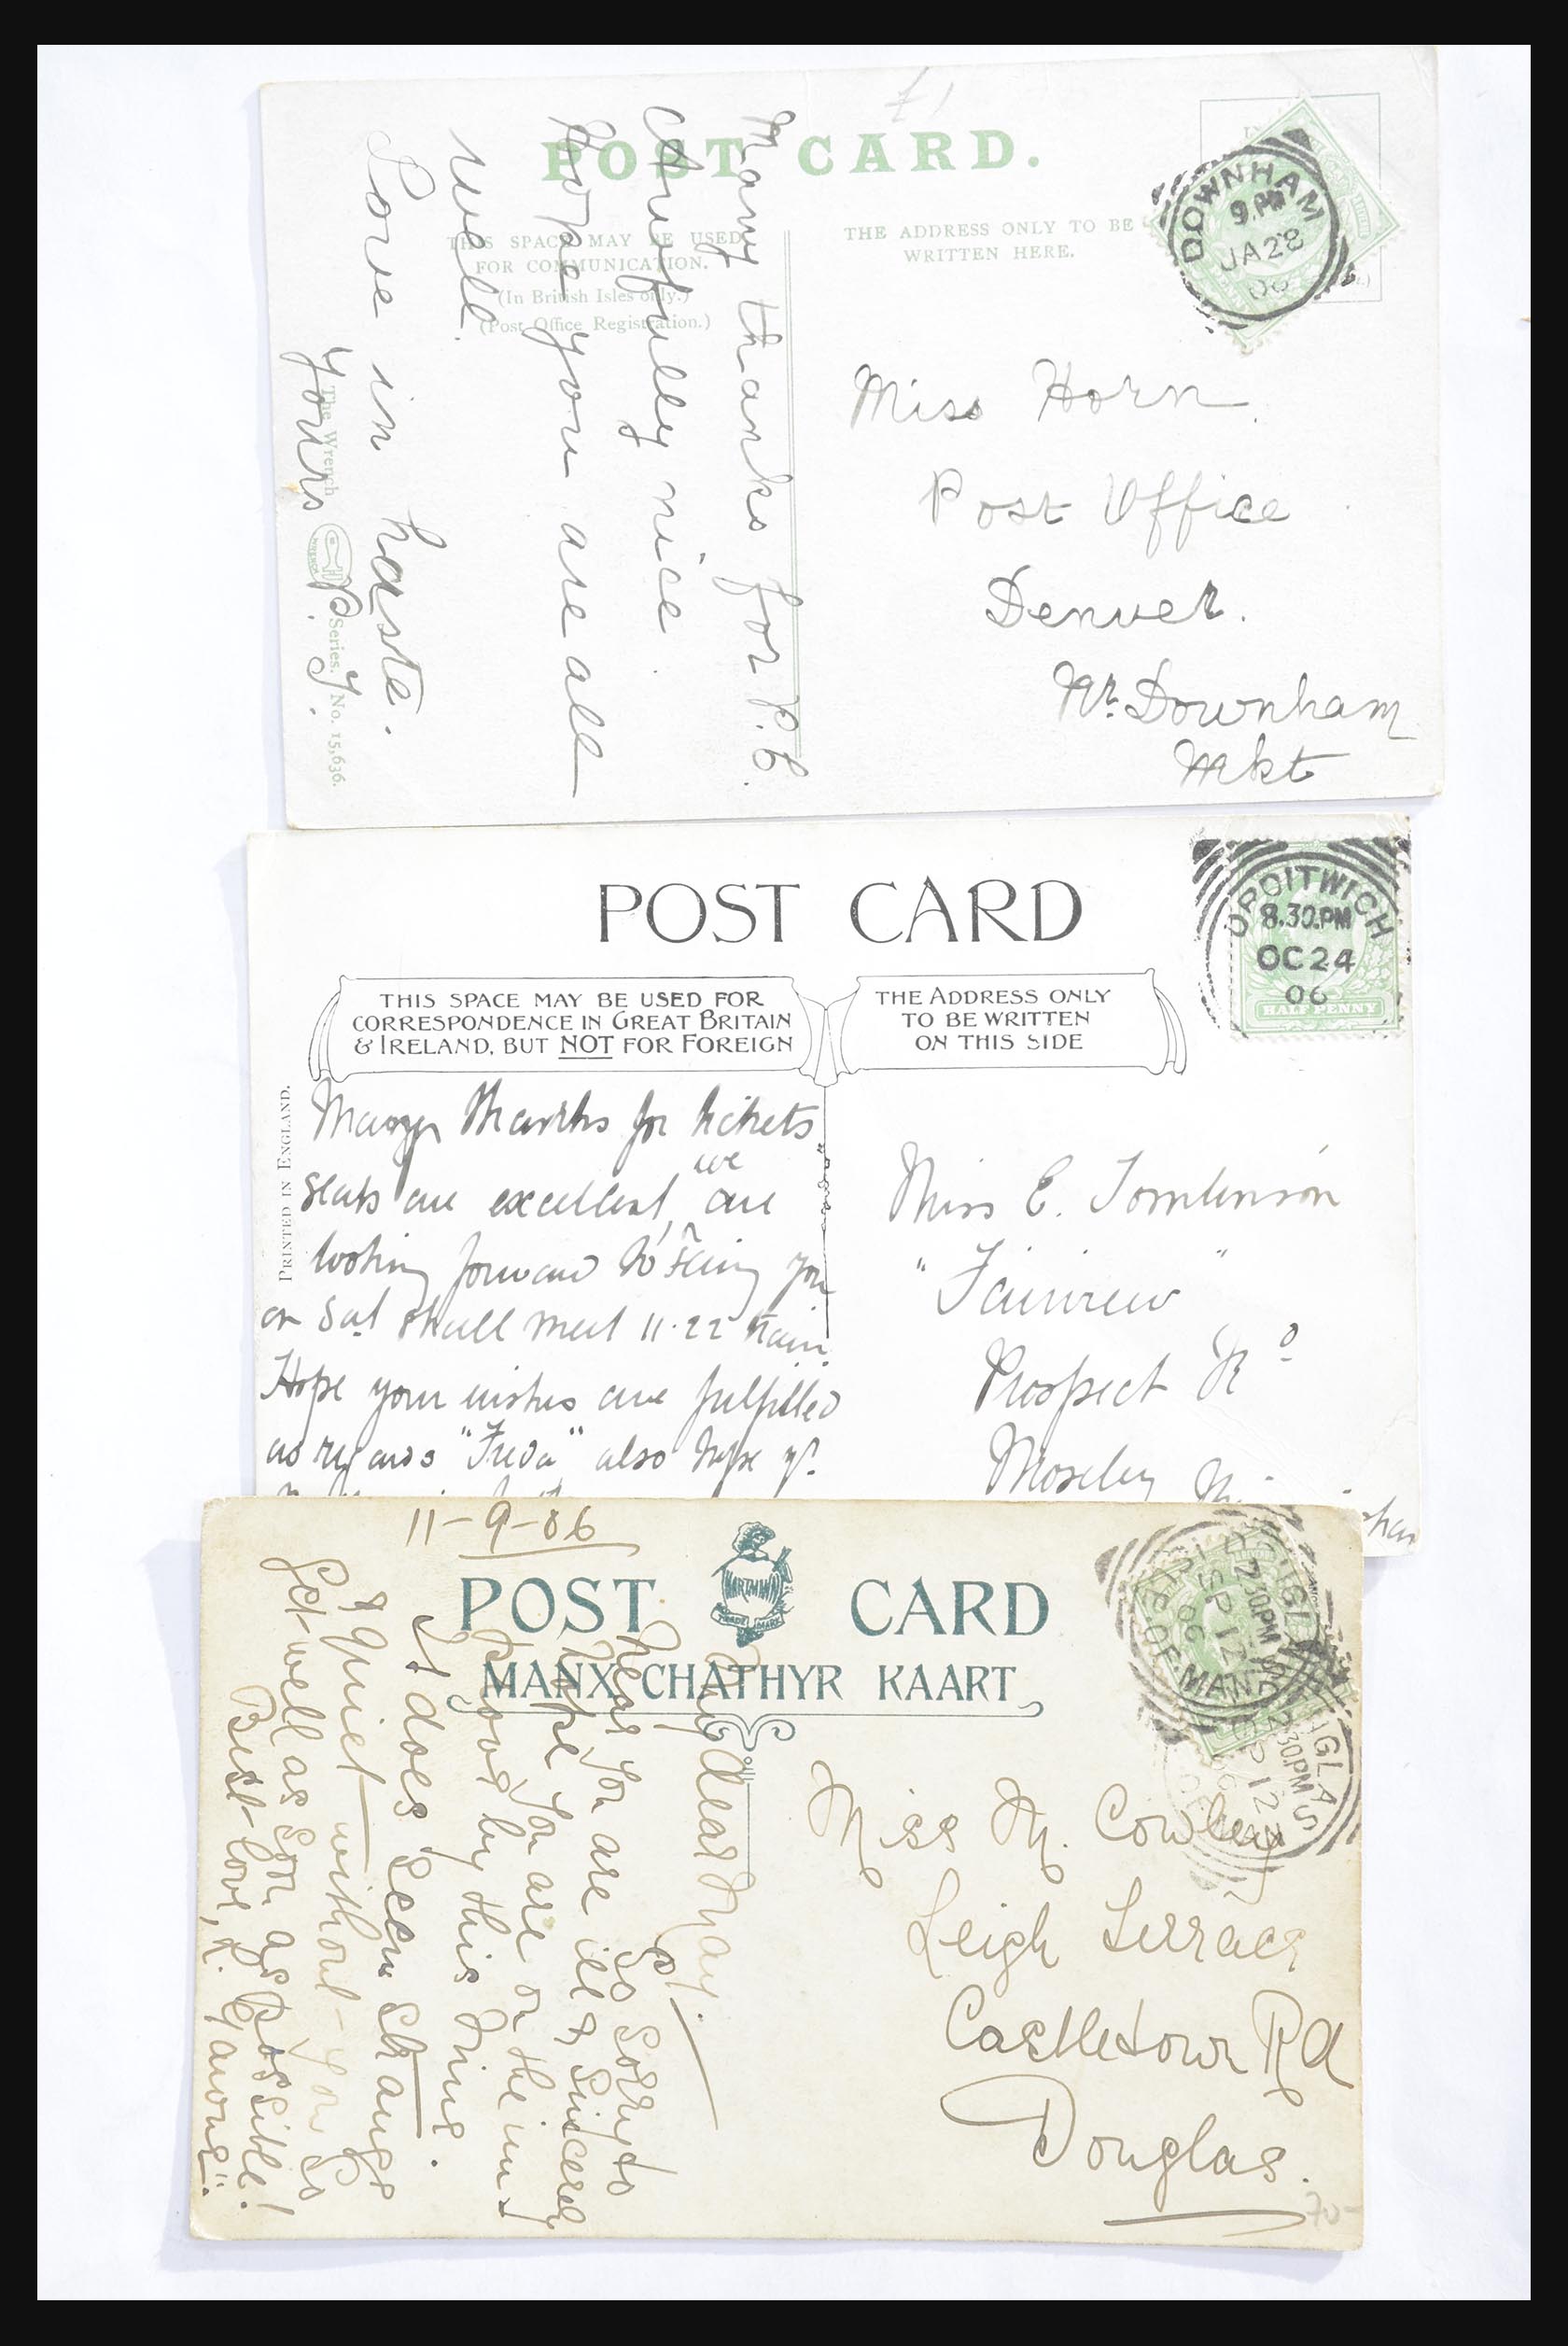 £1
POST CARD.
THIS SPACE MAY BE USED
FOR COMMUNICATION.
(In British Isles only.)
(Post Office Registration.)
THE ADDRESS ONLY TO BE
WRITTEN HERE.
DOWNHAM
9. PM
JA 28
06
Many thanks for P.C.
Awfully nice.
Hope you are all
well.
Love in haste.
Yours
P. J.
The Wrench
WRENCH
Series. No. 15,636.
Miss Horn.
Post Office
Denver.
Nr. Downham
Mkt
POST CARD
THIS SPACE MAY BE USED FOR
CORRESPONDENCE IN GREAT BRITAIN
& IRELAND, BUT NOT FOR FOREIGN
THE ADDRESS ONLY
TO BE WRITTEN
ON THIS SIDE
DROITWICH
8.30.PM
OC 24
06
HALF PENNY
PRINTED IN ENGLAND.
Many thanks for tickets
seats are excellent, we are
looking forward to seeing you
on Sat shall meet 11.22 train.
Hope your wishes are fulfilled
as regards "Freda" also hope yr.
Miss E. Tomlinson
"Fairview"
Prospect Rd
Moseley
11-9-06
POST CARD
MANX CHATHYR KAART
DOUGLAS
2.30PM
SP 12
06
ISLE OF MAN
DOUGLAS
2.30PM
SP 12
My dear May.
So sorry to
hear you are ill & sincerely
hope you are on the
road by this time.
It does seem strange
& quiet without you so
get well as soon as possible!
Best love,
Miss M. Cowley
Leigh Terrace
Castletown Rd
Douglas.
70-